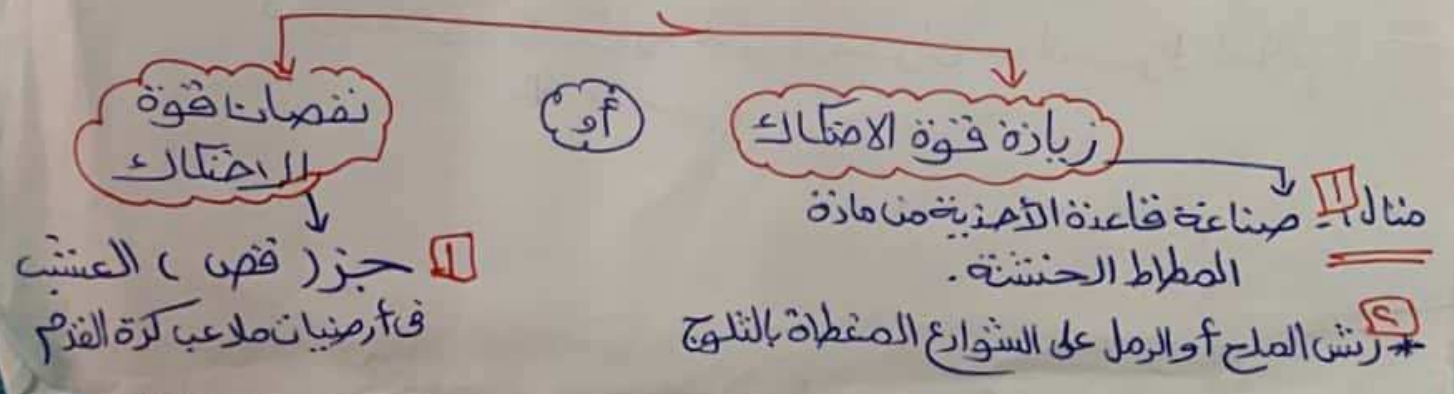 زيادة قوة الاحتكاك
أو
نقصان قوة
الاحتكاك
مثال ١- صناعة قاعدة الأحذية من مادة
المطاط الخشنة.
٢* رش الملح أو الرمل على الشوارع المغطاة بالثلوج
١ جز ( قص ) العشب
فى أرضيات ملاعب كرة القدم